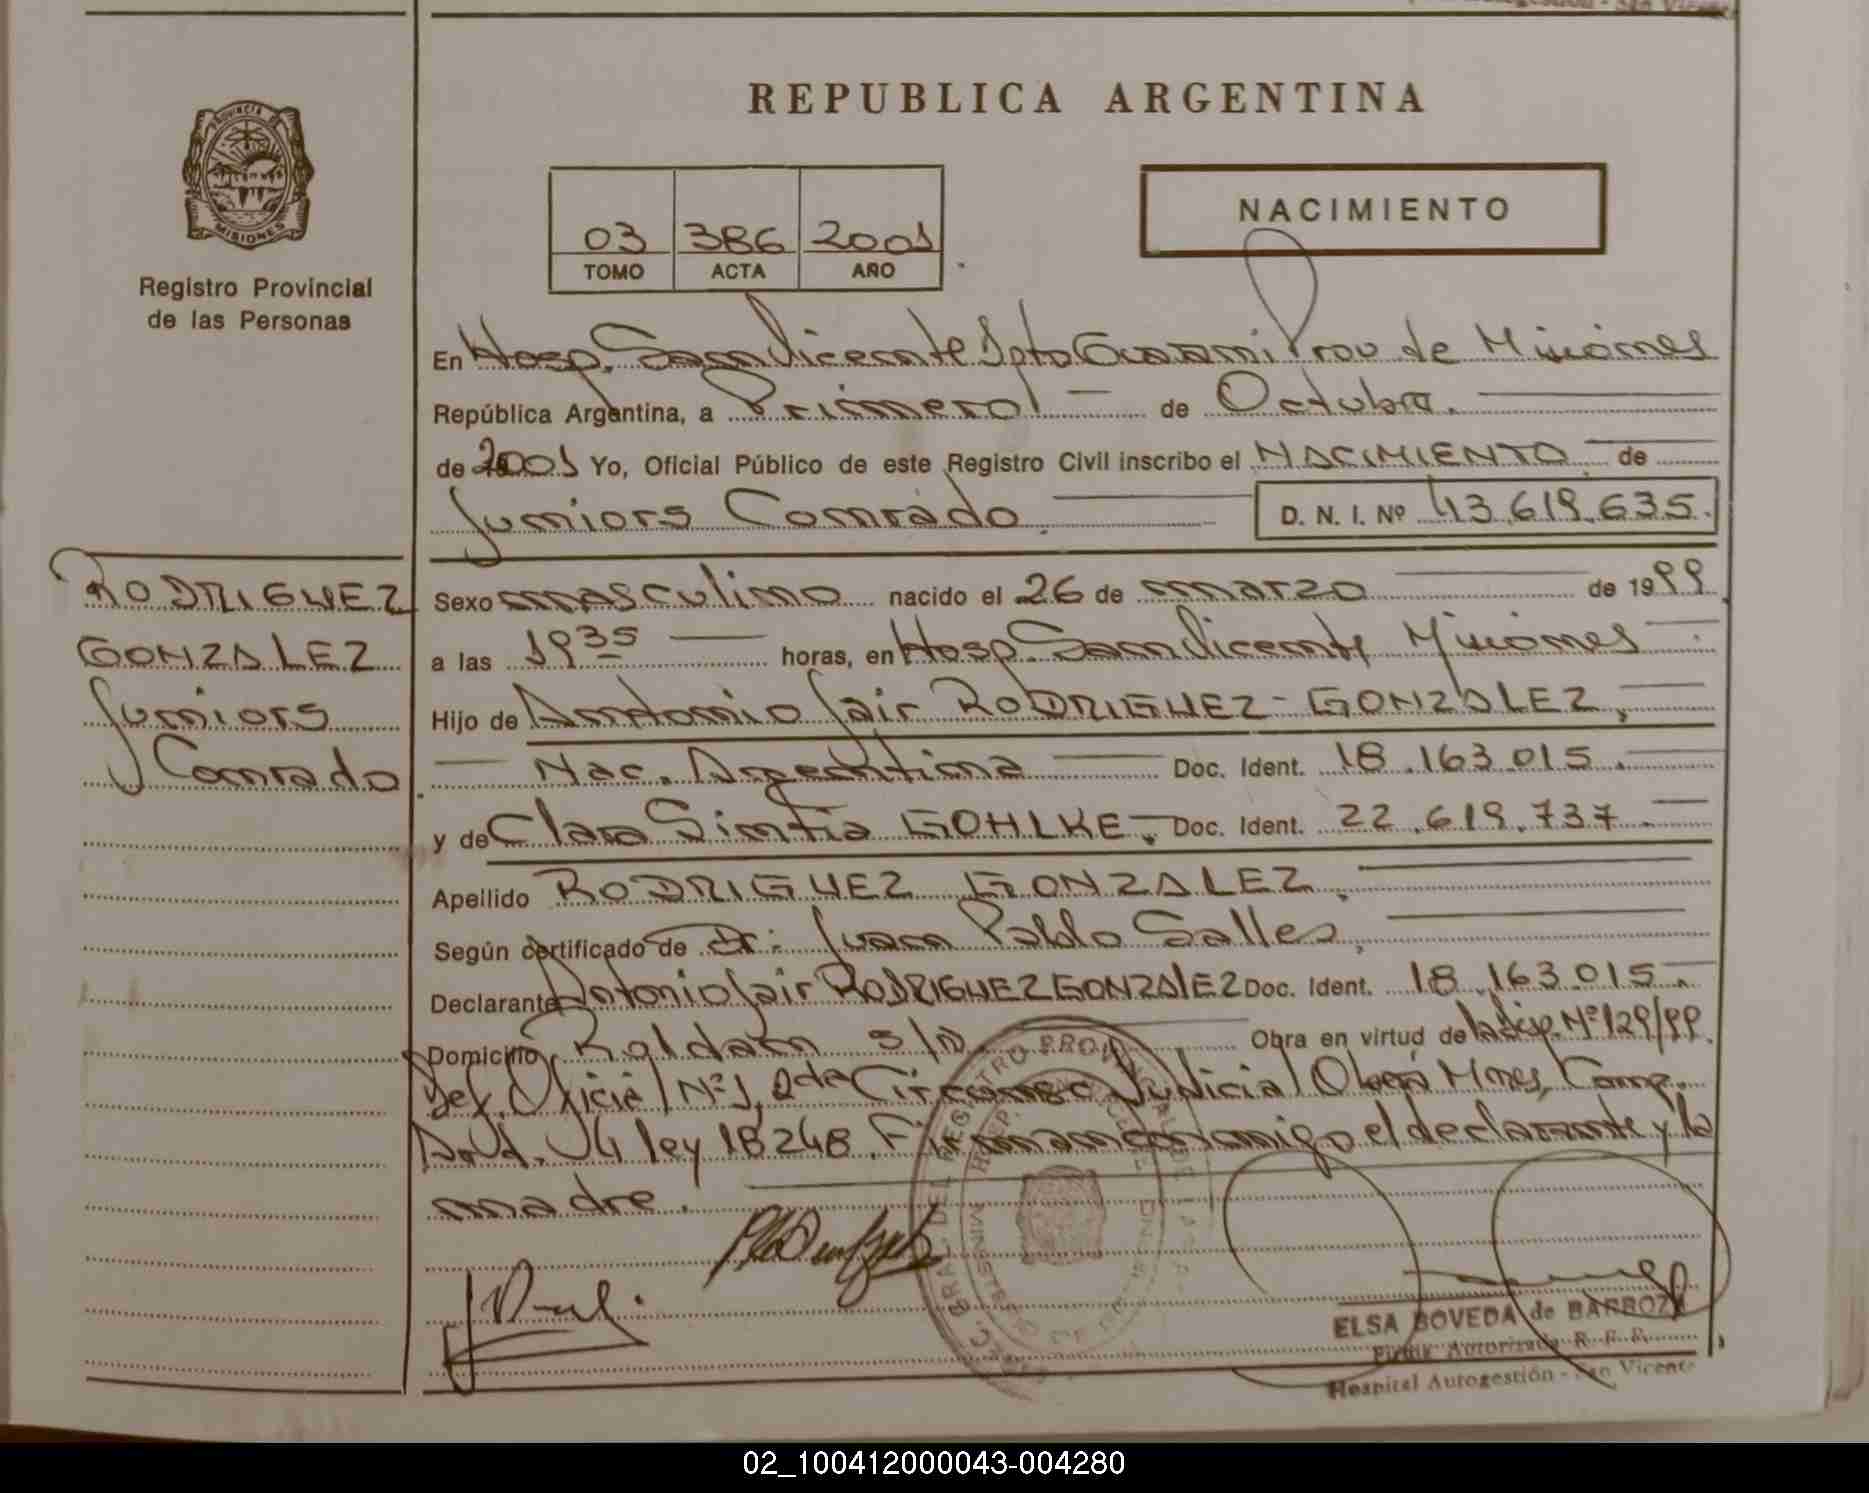 REPUBLICA ARGENTINA
PROVINCIA DE
MISIONES
Registro Provincial
de las Personas
03 386 2001
TOMO ACTA AÑO
NACIMIENTO
En Hosp. San Vicente Dpto Guarani Prov de Misiones
República Argentina, a Primero de Octubre.
de 2001 Yo, Oficial Público de este Registro Civil inscribo el NACIMIENTO de
Juniors Conrado. D. N. I. Nº 43.619.635.
RODRIGUEZ
GONZALEZ
Juniors
Conrado.
Sexo masculino nacido el 26 de marzo de 1999.
a las 19 35 horas, en Hosp. San Vicente Misiones
Hijo de Antonio Jair RODRIGUEZ-GONZALEZ,
Nac. Argentina Doc. Ident. 18.163.015.
y de Clara Sintia GOHLKE, Doc. Ident. 22.619.737.
Apellido RODRIGUEZ GONZALEZ.
Según certificado de Dr: Juan Pablo Salles,
Declarante Antonio Jair RODRIGUEZ GONZALEZ Doc. Ident. 18.163.015.
Domicilio Roldan s/n. Obra en virtud de la disp. Nº 129/99.
Def. Oficial Nº 1, 2da Circunsc. Judicial Oberá Mnes, Comp.
ley 18248. Firman conmigo el declarante y la
madre.
ELSA BOVEDA de BARBOZA
Firma Autorizada R. P. P.
Hospital Autogestión - San Vicente
02_100412000043-004280